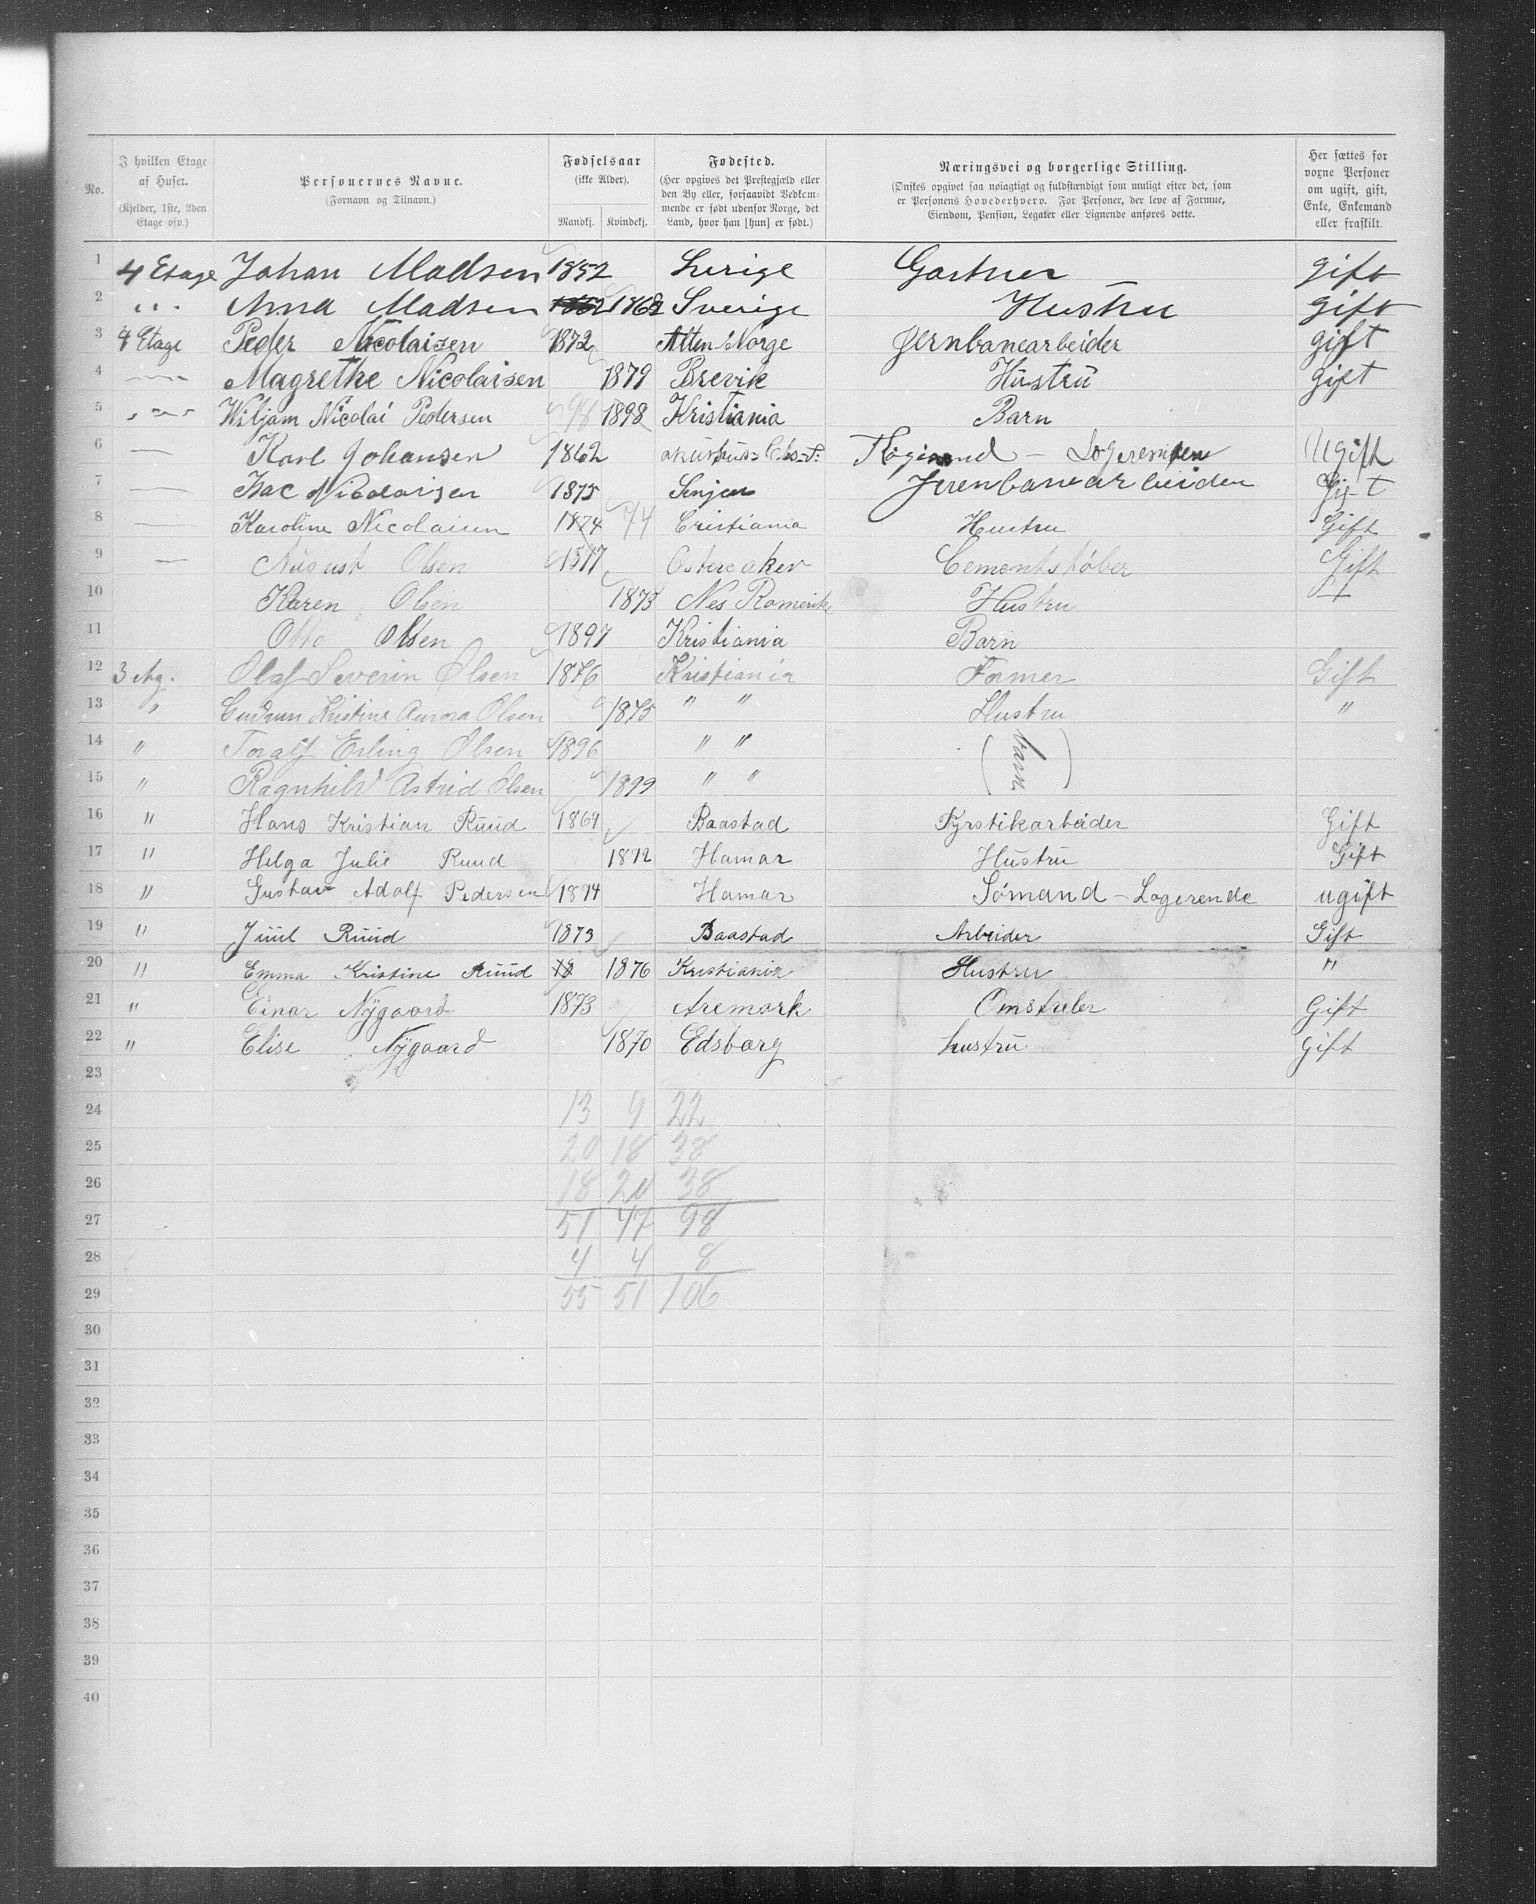 No.
I hvilken Etage af Huset.
(Kjelder, 1ste, 2den Etage osv.)
Personernes Navne.
(Fornavn og Tilnavn.)
Fødselsaar
(ikke Alder).
Mandkj. Kvindekj.
Fødested.
(Her opgives det Prestegjæld eller den By eller, forsaavidt Vedkommende er født udenfor Norge, det Land, hvor han [hun] er født.)
Næringsvei og borgerlige Stilling.
(Ønskes opgivet saa nøiagtigt og fuldstændigt som muligt efter det, som er Personens Hovederhverv. For Personer, der leve af Formue, Eiendom, Pension, Legater eller Lignende anføres dette.
Her sættes for voxne Personer om ugift, gift, Enke, Enkemand eller fraskilt.
1 4 Etage Johan Madsen 1852 Sverige Gartner gift
2 " " Anna Madsen 1862 Sverige Hustru gift
3 4 Etage Peder Nicolaisen 1872 Alten Norge Jernbanearbeider gift
4 Magrethe Nicolaisen 1879 Brevik Hustru gift
5 Wiljam Nicolai Pedersen 98 1898 Kristiania Barn
6 Karl Johansen 1862 Logerende Ugift
7 Isac Nicolaisen 1875 Senjen Jerenbanearbeider Gift
8 Karoline Nicolaisen 1874 74 Cristiania Hustru Gift
9 August Olsen 1877 Østereaker Cementstøber Gift
10 Karen Olsen 1873 Nes Romerike Hustru
11 Otto Olsen 1897 Kristiania Barn
12 3 etg. Olaf Severin Olsen 1876 Kristiania Former Gift
13 " Gudrun Kristine Aurora Olsen 1875 " " Hustru "
14 " Toralf Erling Olsen 1896 " " (barn)
15 " Ragnhild Astrid Olsen 1899 " "
16 " Hans Kristian Ruud 1869 Baastad Fyrstikarbeider Gift
17 " Helga Julie Ruud 1872 Hamar Hustru Gift
18 " Gustav Adolf Pedersen 1874 Hamar Sømand - Logerende ugift
19 " Juul Ruud 1873 Baastad Arbeider Gift
20 " Emma Kristine Ruud 1876 Kristiania Hustru "
21 " Einar Nygaard 1873 Aremark Gift
22 " Elise Nygaard 1870 Edsborg hustru Gift
23
24 13 9 22
25 20 18 38
26 18 20 38
27 51 47 98
28 4 4 8
29 55 51 106
30
31
32
33
34
35
36
37
38
39
40